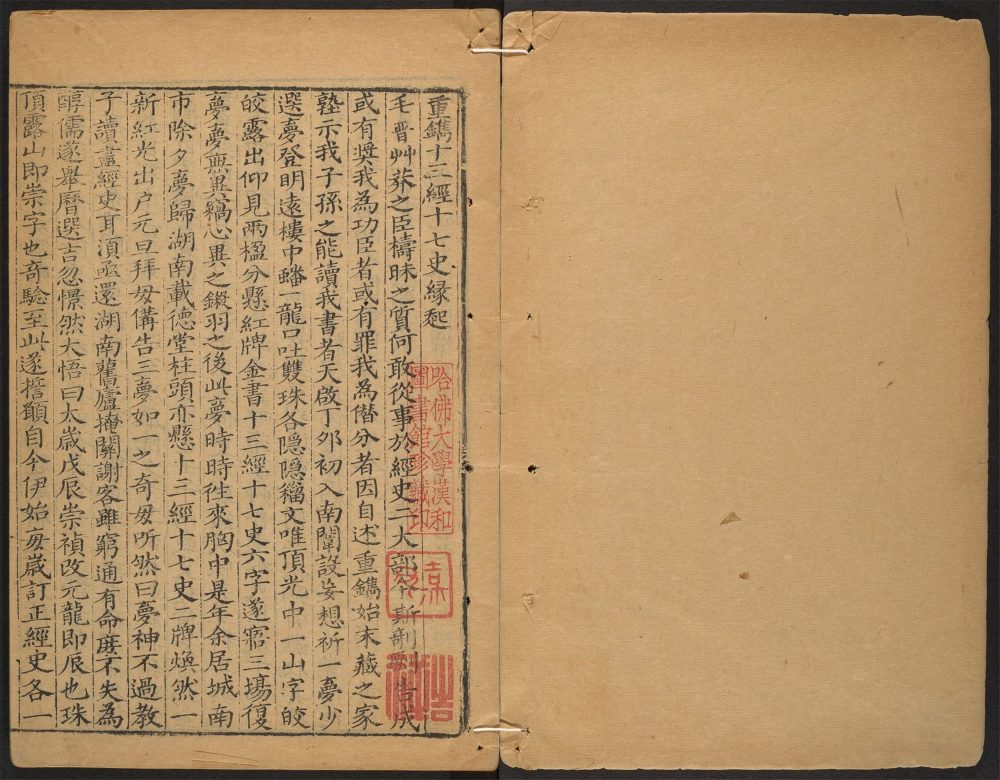 重鐫十三經十七史緣起
毛晉艸莽之臣檮昧之質何敢從事於經史二大部今斯剞劂告成
或有奬我為功臣者或有罪我為僭分者因自述重鐫始末藏之家
塾示我子孫之能讀我書者天啟丁夘初入南闈設妄想祈一夢少
選夢登明遠樓中蟠一龍口吐雙珠各隱隱籀文唯頂光中一山字皎
皎露出仰見兩楹分懸紅牌金書十三經十七史六字遂寤三塲復
夢夢無異竊心異之鎩羽之後此夢時時徃來胸中是年余居城南
市除夕夢歸湖南載德堂柱頭亦懸十三經十七史二牌煥然一
新紅光出户元旦拜毋備告三夢如一之奇毋听然曰夢神不過教
子讀盡經史耳須亟還湖南舊廬掩關謝客雖窮通有命庻不失為
醇儒遂舉曆選吉忽憬然大悟曰太歲戊辰崇禎改元龍即辰也珠
頂露山即崇字也竒騐至此遂誓願自今伊始毎歲訂正經史各一
哈佛大學漢和
圖書館珍藏印